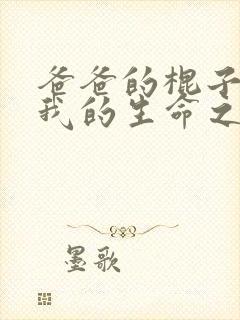 爸爸的棍子
我的生命之
墨歌